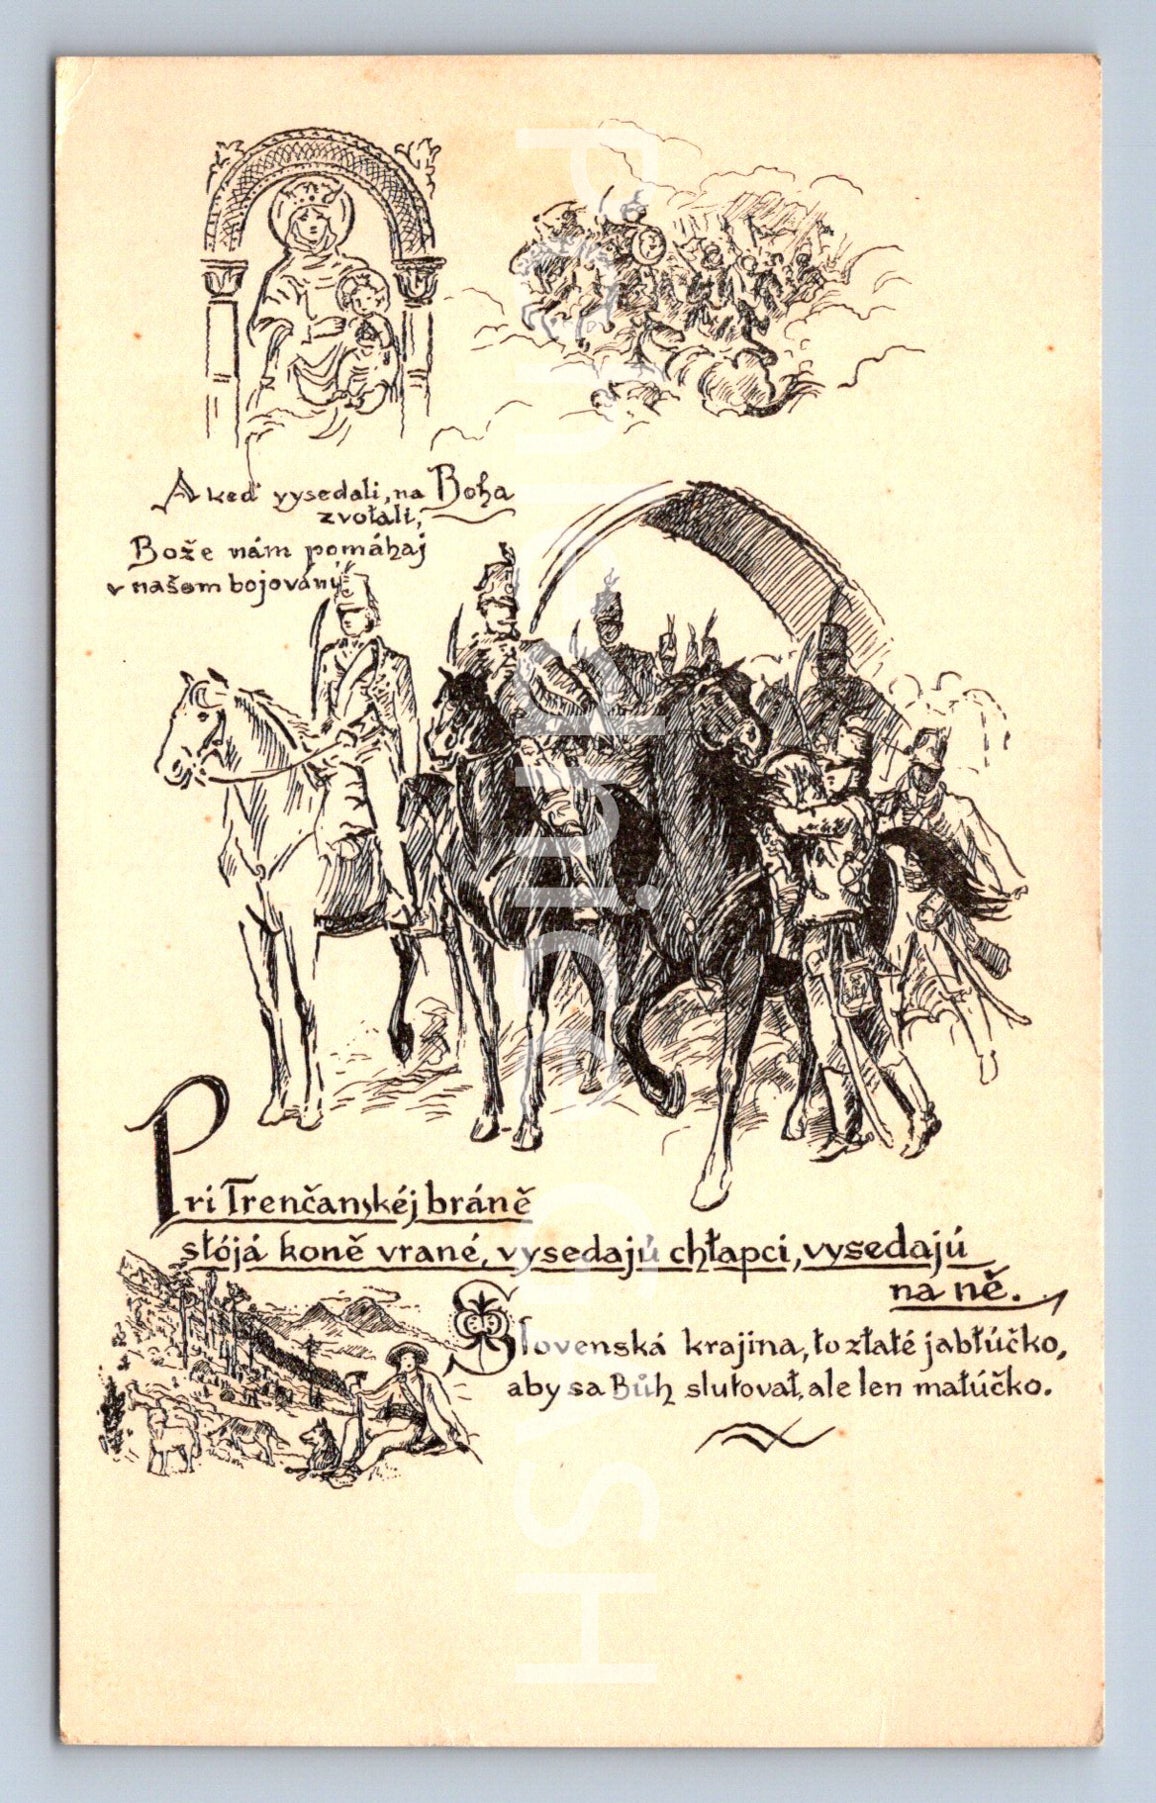 A keď vysedali, na Boha
zvołali;
Bože nám pomáhaj
v našem bojováný
Pri Trenčanskéj bráně
stójá koně vrané, vysedajú chłapci, vysedajú
na ně.
Slovenská krajina, to złaté jabłúčko,
aby sa Bůh slutovał, ale len małúčko.